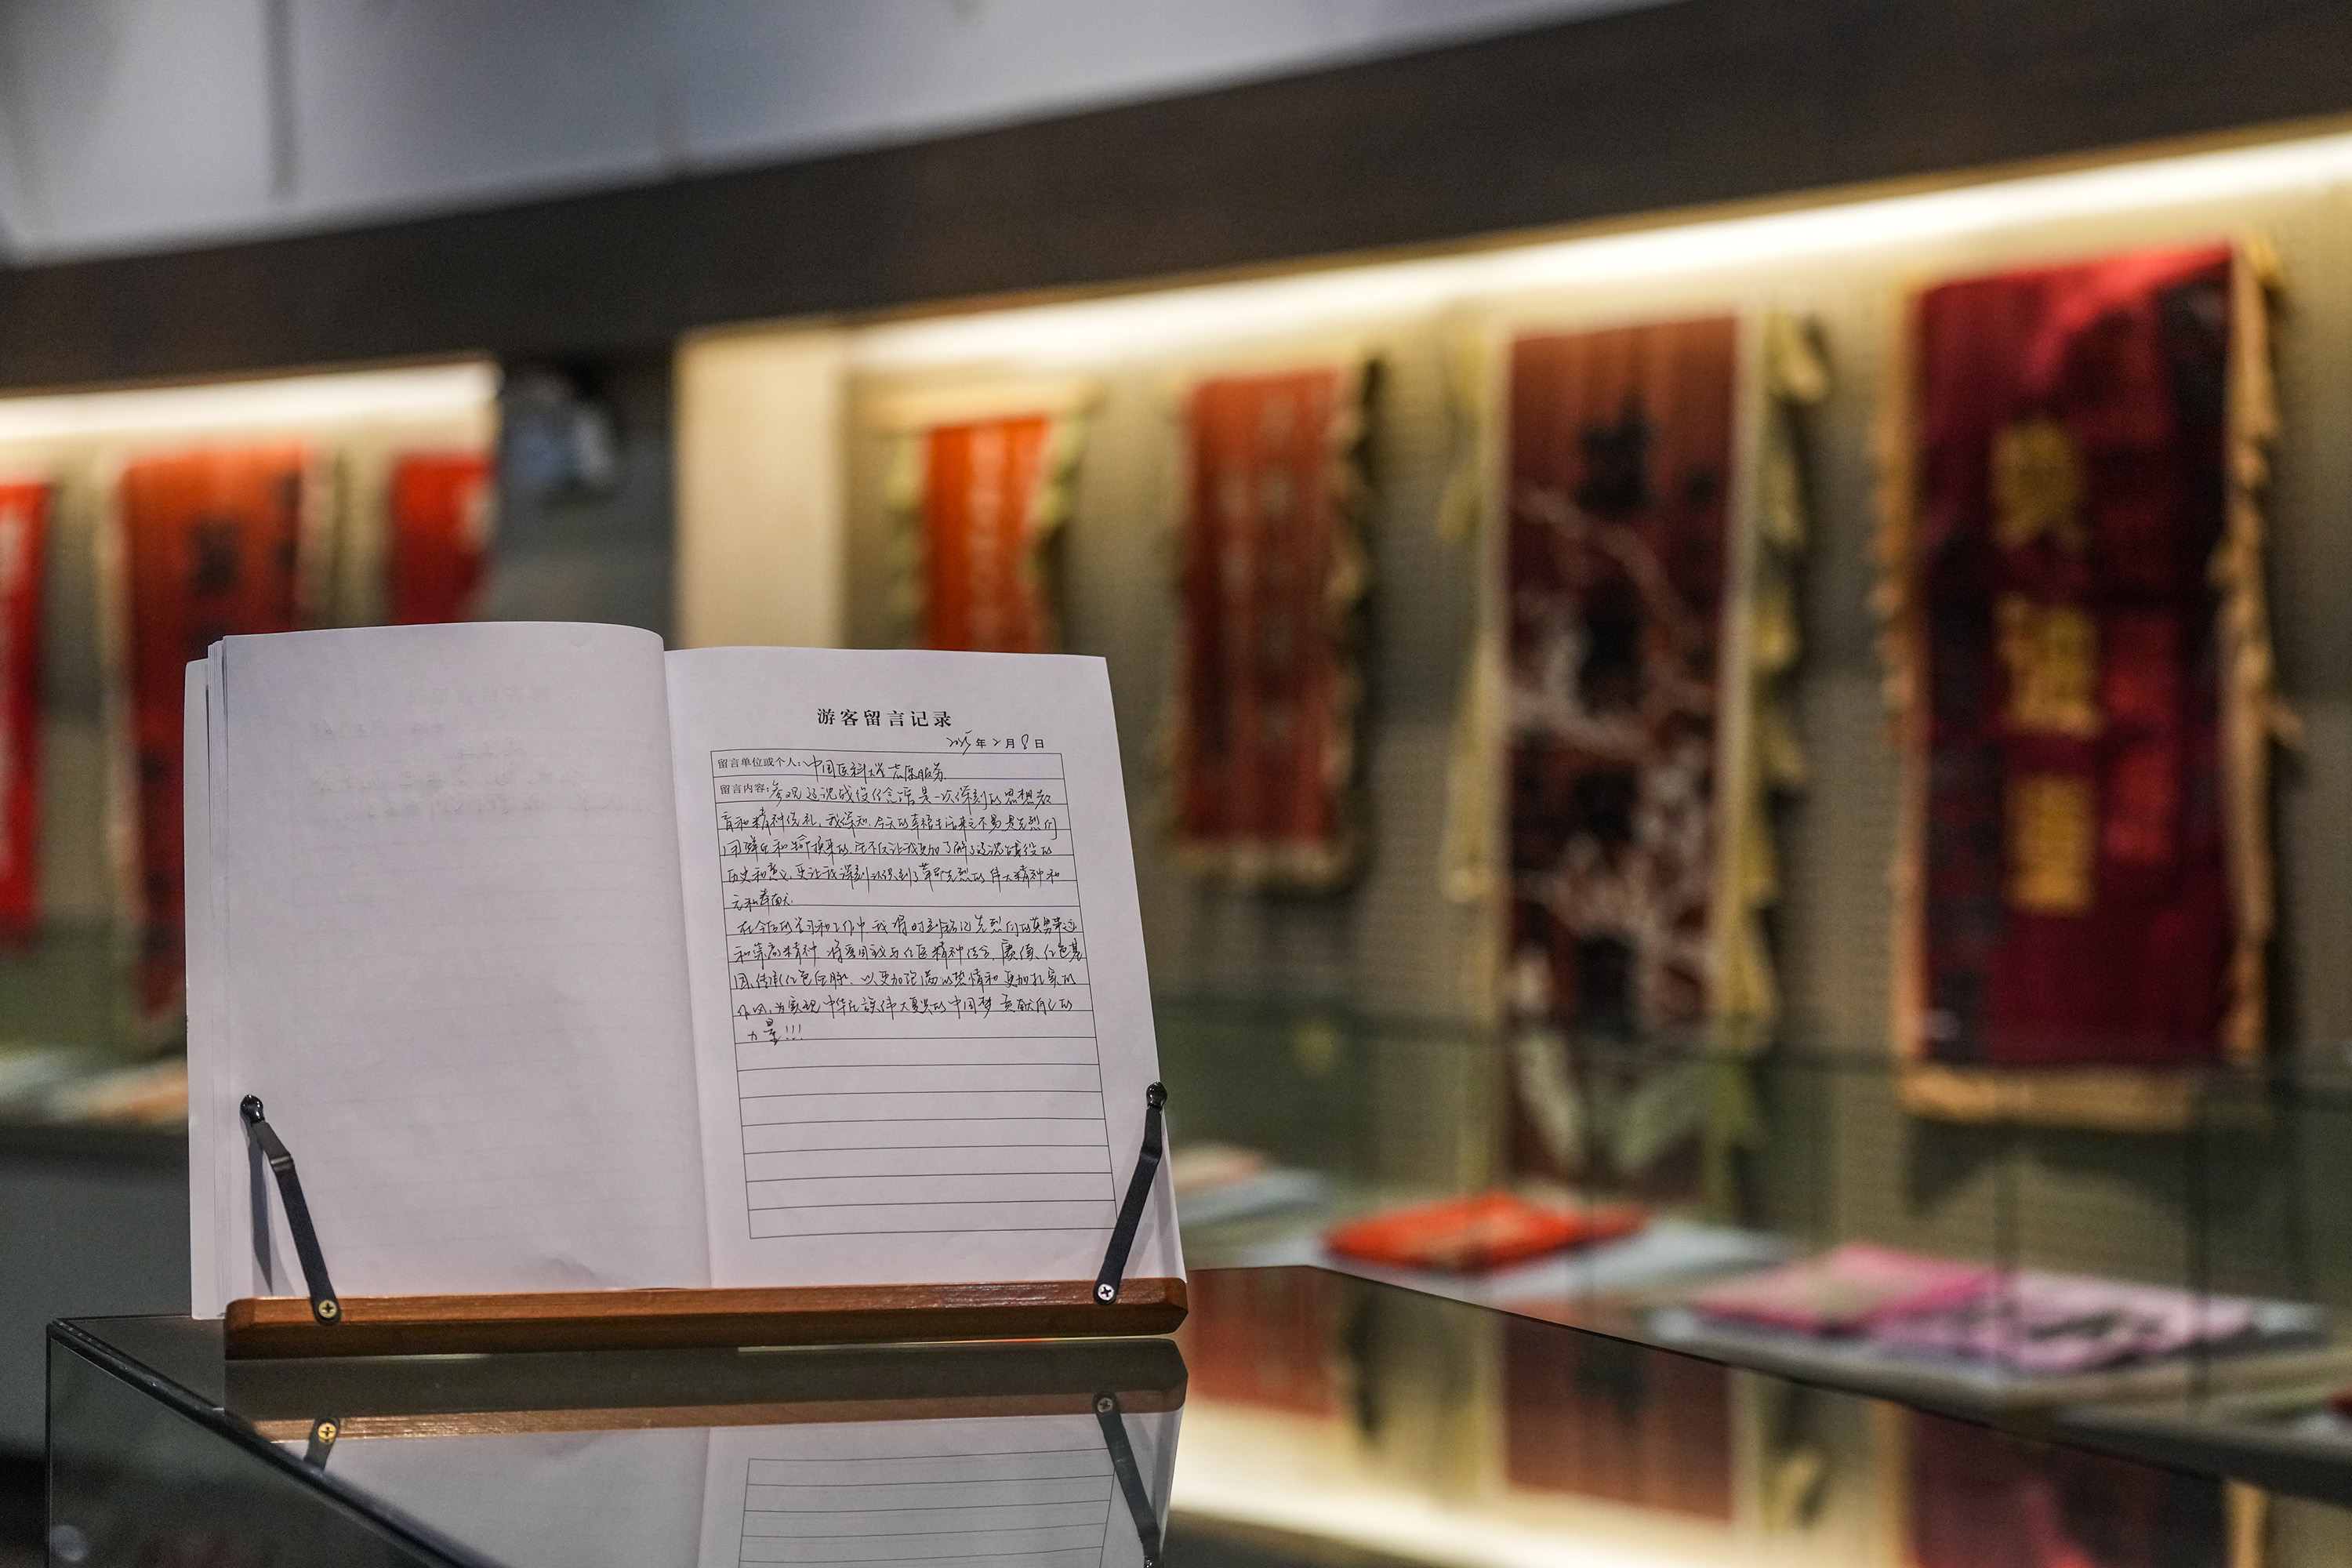 游客留言记录
2025年2月8日
留言单位或个人:中国医科大学志愿服务
留言内容:参观辽沈战役纪念馆是一次深刻的思想教
育和精神洗礼,我深知,今天的幸福生活来之不易,是先烈们
用鲜血和生命换来的,它不仅让我更加了解了辽沈战役的
历史和意义,更让我深刻认识到了革命先烈的伟大精神和
无私奉献。
在今后的学习和工作中,我将时刻铭记先烈们的英勇事迹
和崇高精神,将爱国 与红医精神结合,赓续红色基
因,传承红色血脉,以更加饱满的热情和更加扎实的
作风,为实现中华民族伟大复兴的中国梦贡献自己的
力量!!!